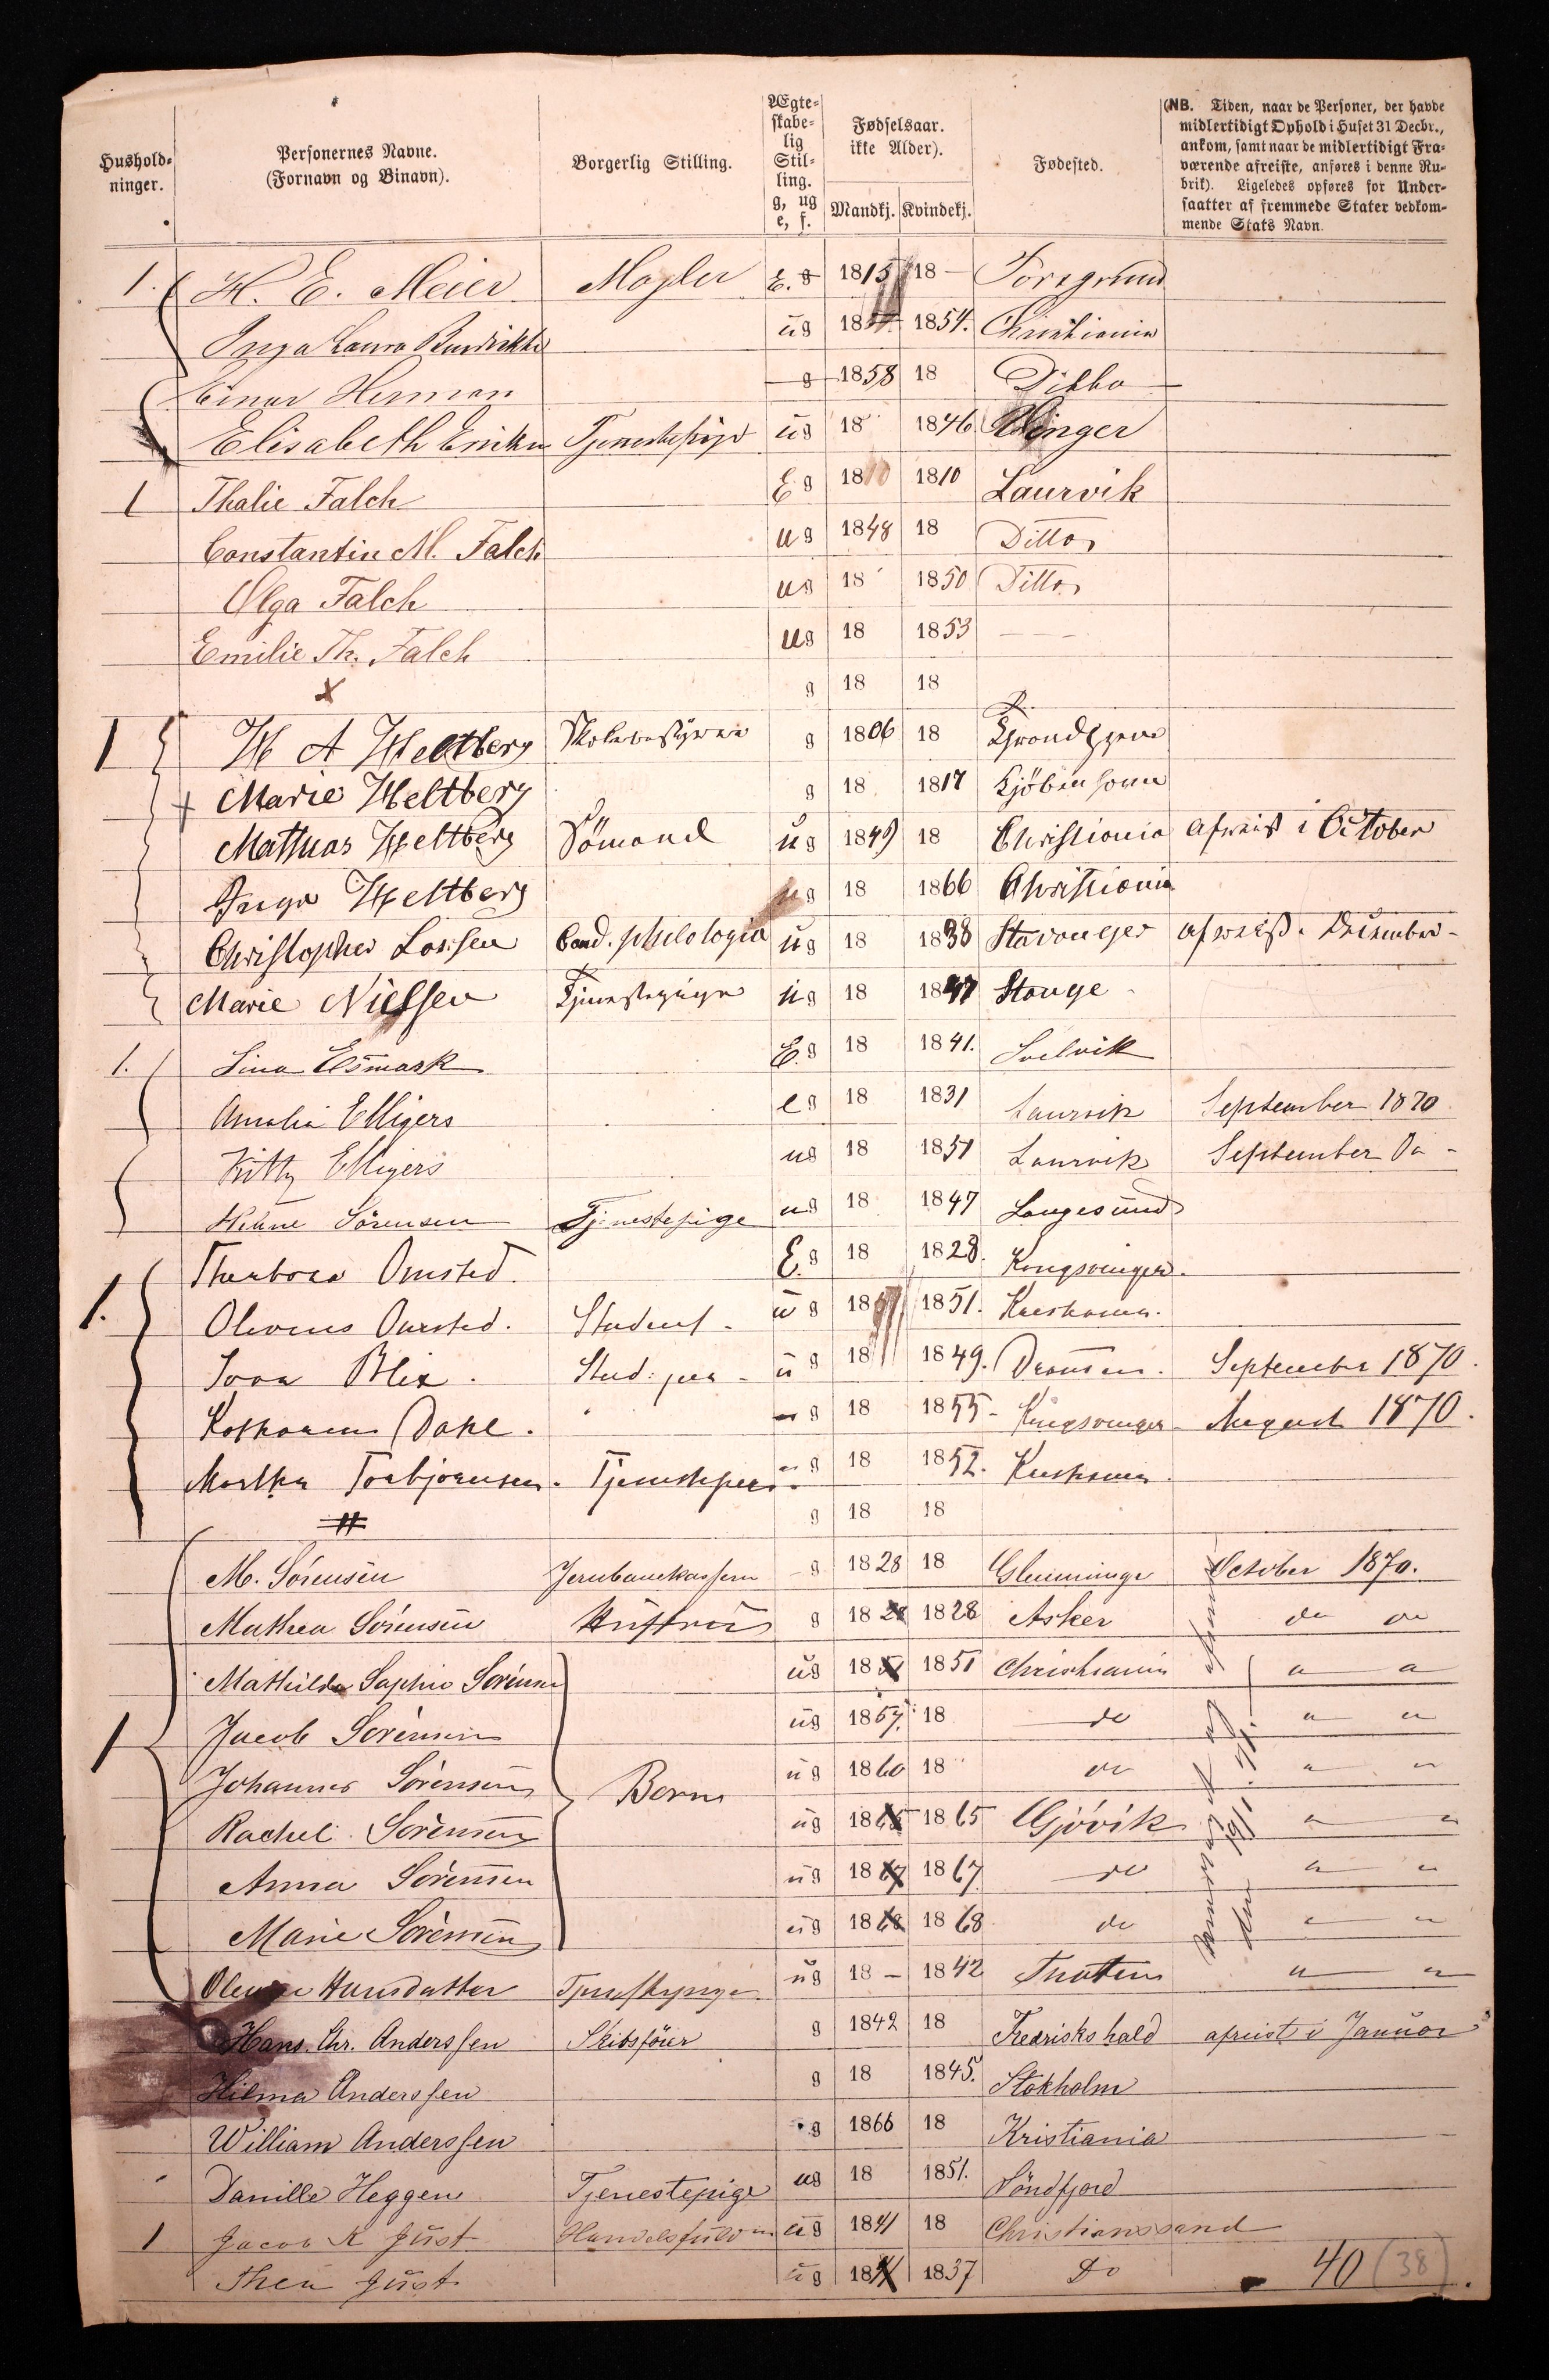 Hushold-
ninger.
Personernes Navne.
(Fornavn og Binavn).
Borgerlig Stilling.
Ægte-
skabe-
lig
Stil-
ling.
g, ug
e, f.
Fødselsaar.
ikke Alder).
Mandkj. Kvindekj.
Fødested.
(NB. Tiden, naar de Personer, der havde
midlertidigt Ophold i Huset 31 Decbr.,
ankom, samt naar de midlertidigt Fra-
værende afreiste, anføres i denne Ru-
brik). Ligeledes opføres for Under-
saatter af fremmede Stater vedkom-
mende Stats Navn.
1. H. E. Meier Mægler E. g 1815 18 - Porsgrund
Inga Laura ug 18 1854. Christiania
Einar Herman g 1858 18 Ditto
Elisabeth Tjenestepige ug 18 1846 Vinger
1 Thalie Falch E g 18 1810 Laurvik
Constantin M. Falch ug 1848 18 Ditto
Olga Falch ug 18 1850 Ditto
Emilie Th. Falch ug 18 1853 - - -
x g 18 18
1 H A Heltberg Skolebestyrer g 1806 18
+ Marie Heltberg g 18 1817
Mathias Heltberg Sömand ug 1849 18 Christiania afreist i October
Inga Heltberg ug 18 1866 Christiania
Christopher Cand. philologia ug 18 1838 Stavanger afreist. December -
Marie Nielsen Tjenestepige ug 18 1847 Stange
1. Lina Esmark E. g 18 1841. Svelvik
Amalia Elligers e g 18 1831 Laurvik September 1870
Kitty Elligers ug 18 1851 Laurvik September Do -
Sörensen Tjenestepige ug 18 1847 Langesund
1. Omsted. E. g 18 1828. Kongsvinger.
Omsted. Student - u g 18 1851.
Blix. Stud: u g 18 1849. Drammen. September 1870.
Dahl. g 18 1855 - Kongsvinger - August 1870.
Martha Torbjörnsen. g 18 1852.
# g 18 18
1 M. Sörensen Jernbanekasserer g 1828 18 October 1870.
Mathea Sörensen Hustru g 18 1828 Asker do do
Mathilde Sophie Sörensen ug 18 1851 Christiania " "
Jacob Sörensen ug 1857. 18 do " "
Johannes Sörensen Børn ug 1860 18 do " "
Rachel Sörensen ug 18 1865 Gjövik " "
Anna Sörensen ug 18 1867 do " "
Marie Sörensen ug 18 1868 do " "
Hansdatter Tjenestepige ug 18 - 1842 " "
Hans Chr. Anderssen Skibsförer g 1842 18 Fredrikshald afreist i Januar
Hilma Anderssen g 18 1845. Stokholm
William Anderssen g 1866 18 Kristiania
Danille Heggen Tjenestepige ug 18 1851. Söndfjord
1 Jacob K Just ug 1841 18 Christianssand
Thea Just ug 18 1837 Do
40 (38)